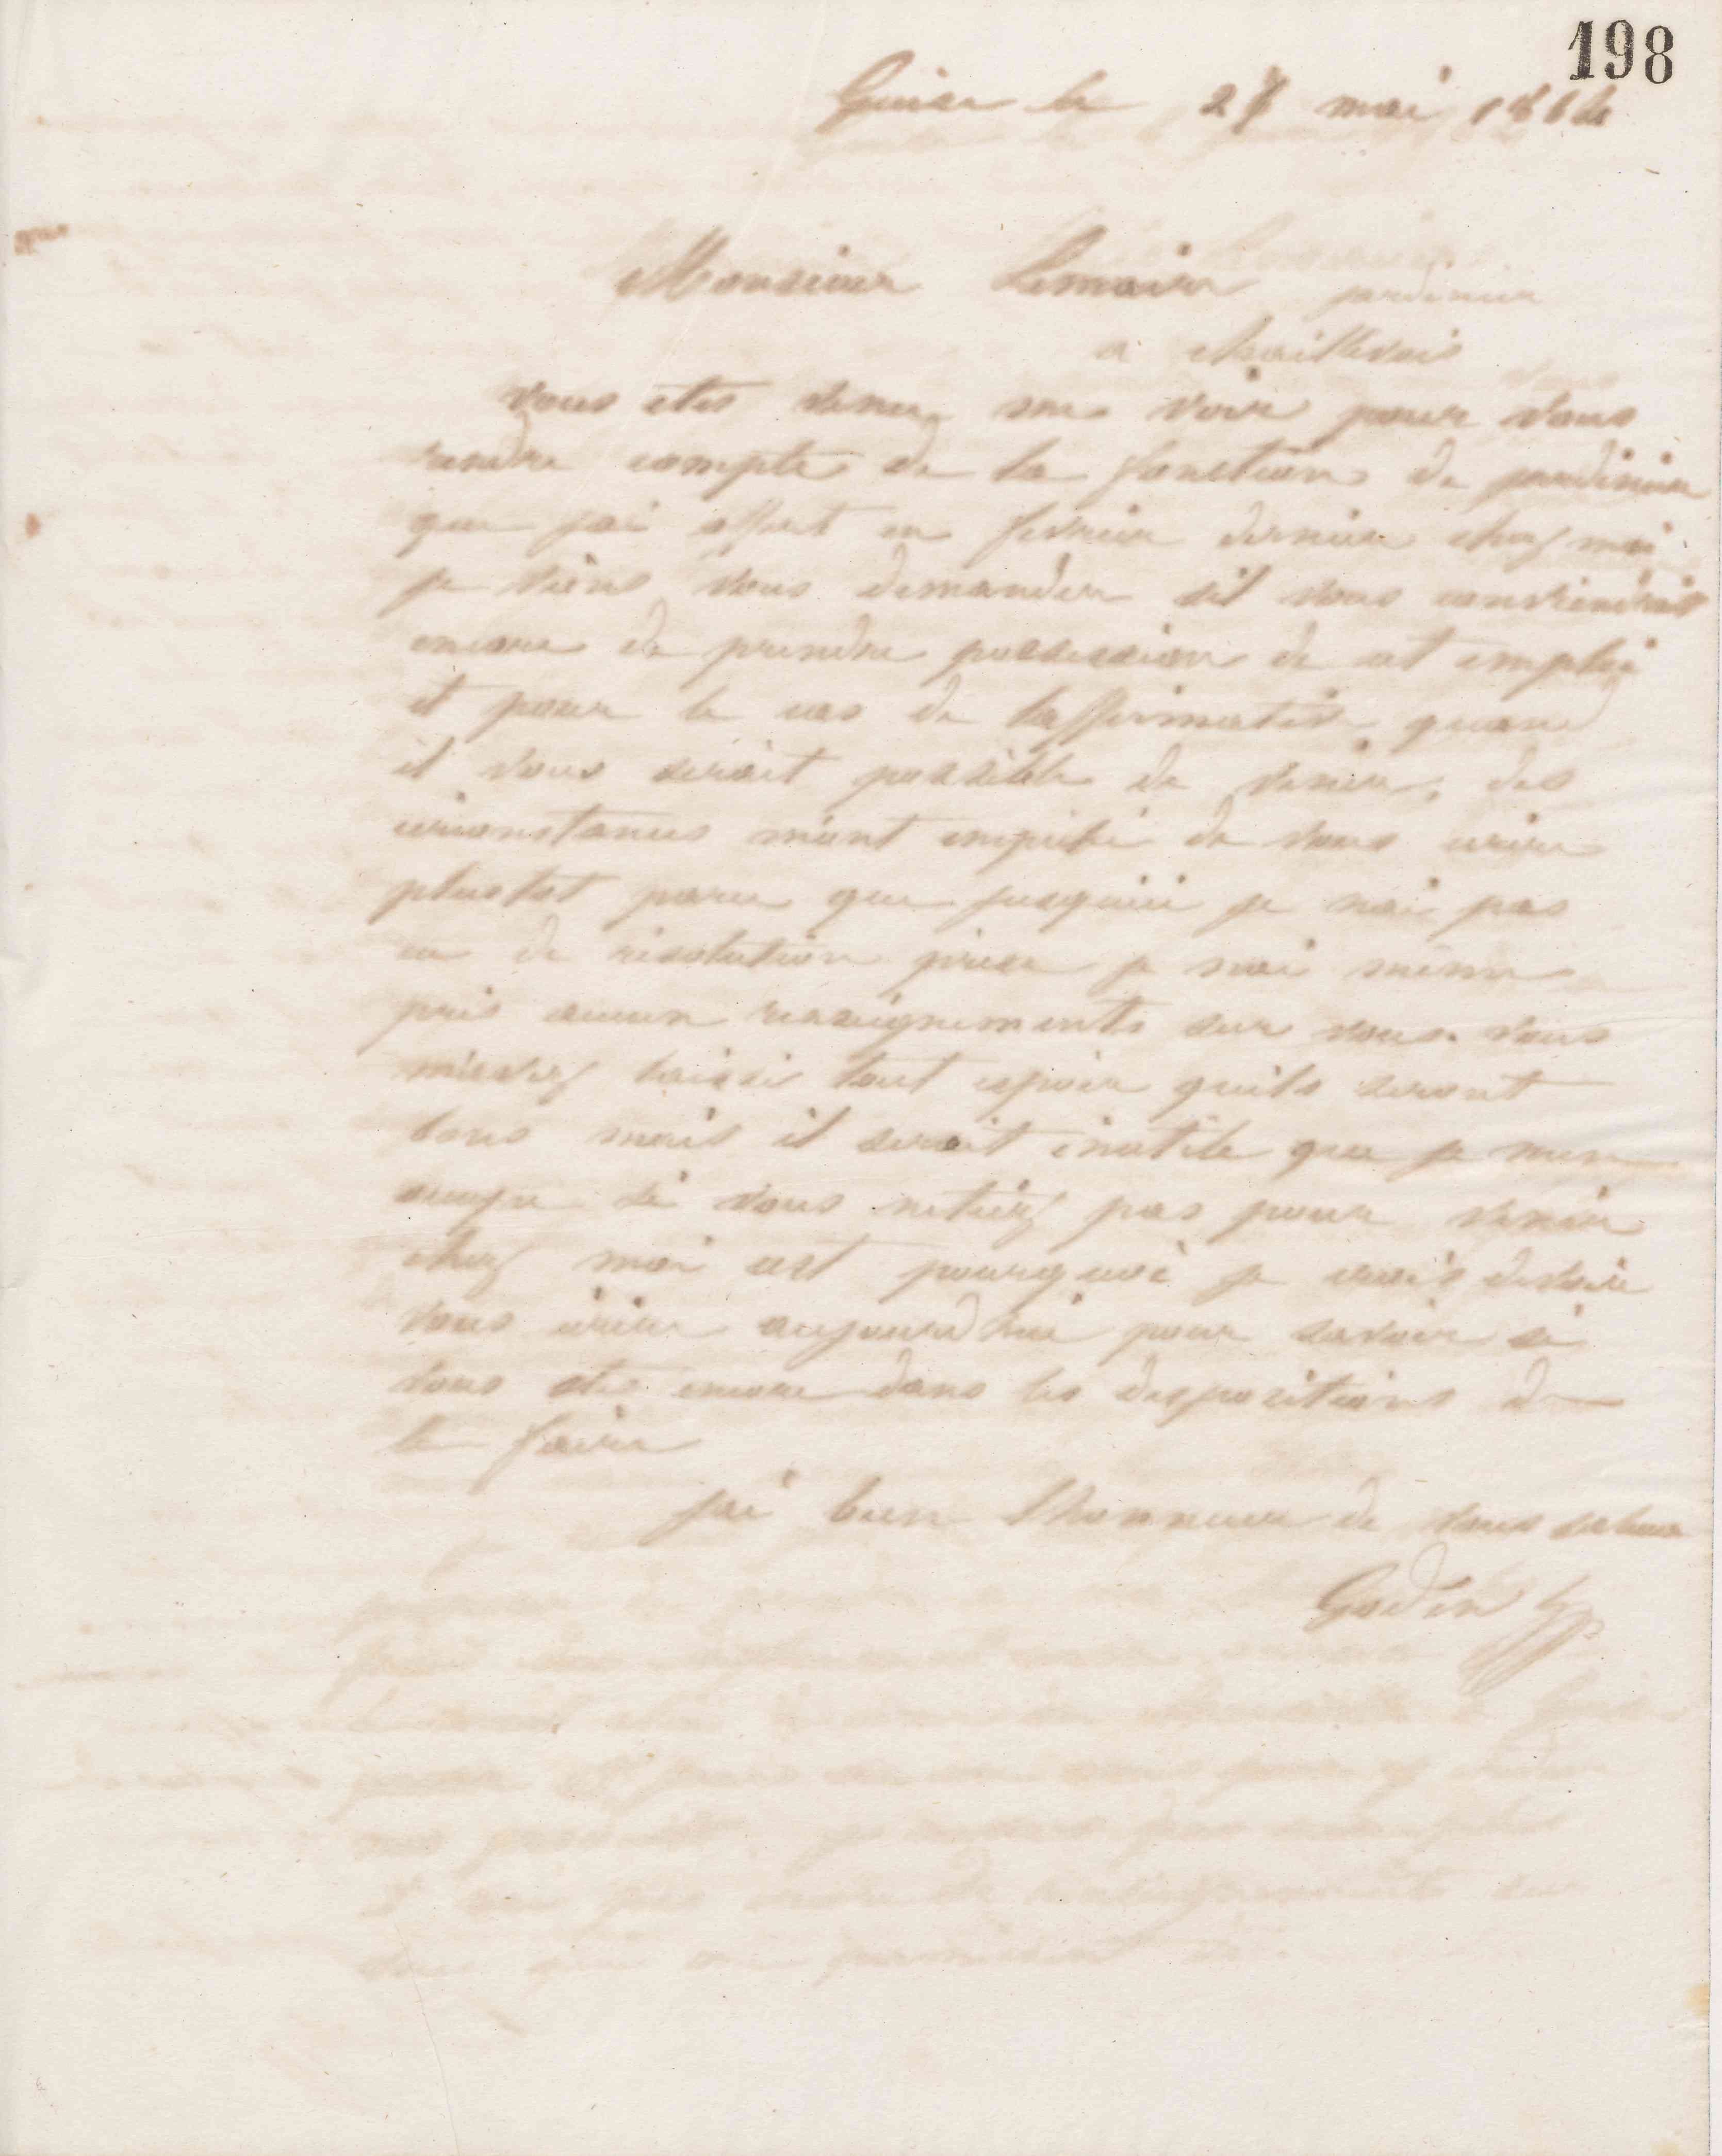 198
Guise le 2 mai 186
Monsieur Lemaire jardinier
a Chaillevois
vous etes venu me voir pour vous
rendre compte de la fonction de jardinier
que jai offert en fevrier dernier chez moi
je viens vous demander sil vous conviendrait
encore de prendre possession de cet emploi
et pour le cas de laffirmative quand
il vous serait possible de venir, des
circonstances mont empeché de vous ecrire
plustot parce que jusquici je nai pas
eu de résolution prise je nai meme
pris aucun renseignements sur vous. vous
mavez laissé tout espoir quils seront
bons mais il serait inutile que je men
occupe si vous netiez pas pour venir
chez moi cest pourquoi je crois devoir
vous écrire aujourdhui pour savoir si
vous etes encore dans les dispositions de
le faire
jai bien lhonneur de vous saluer
Godin